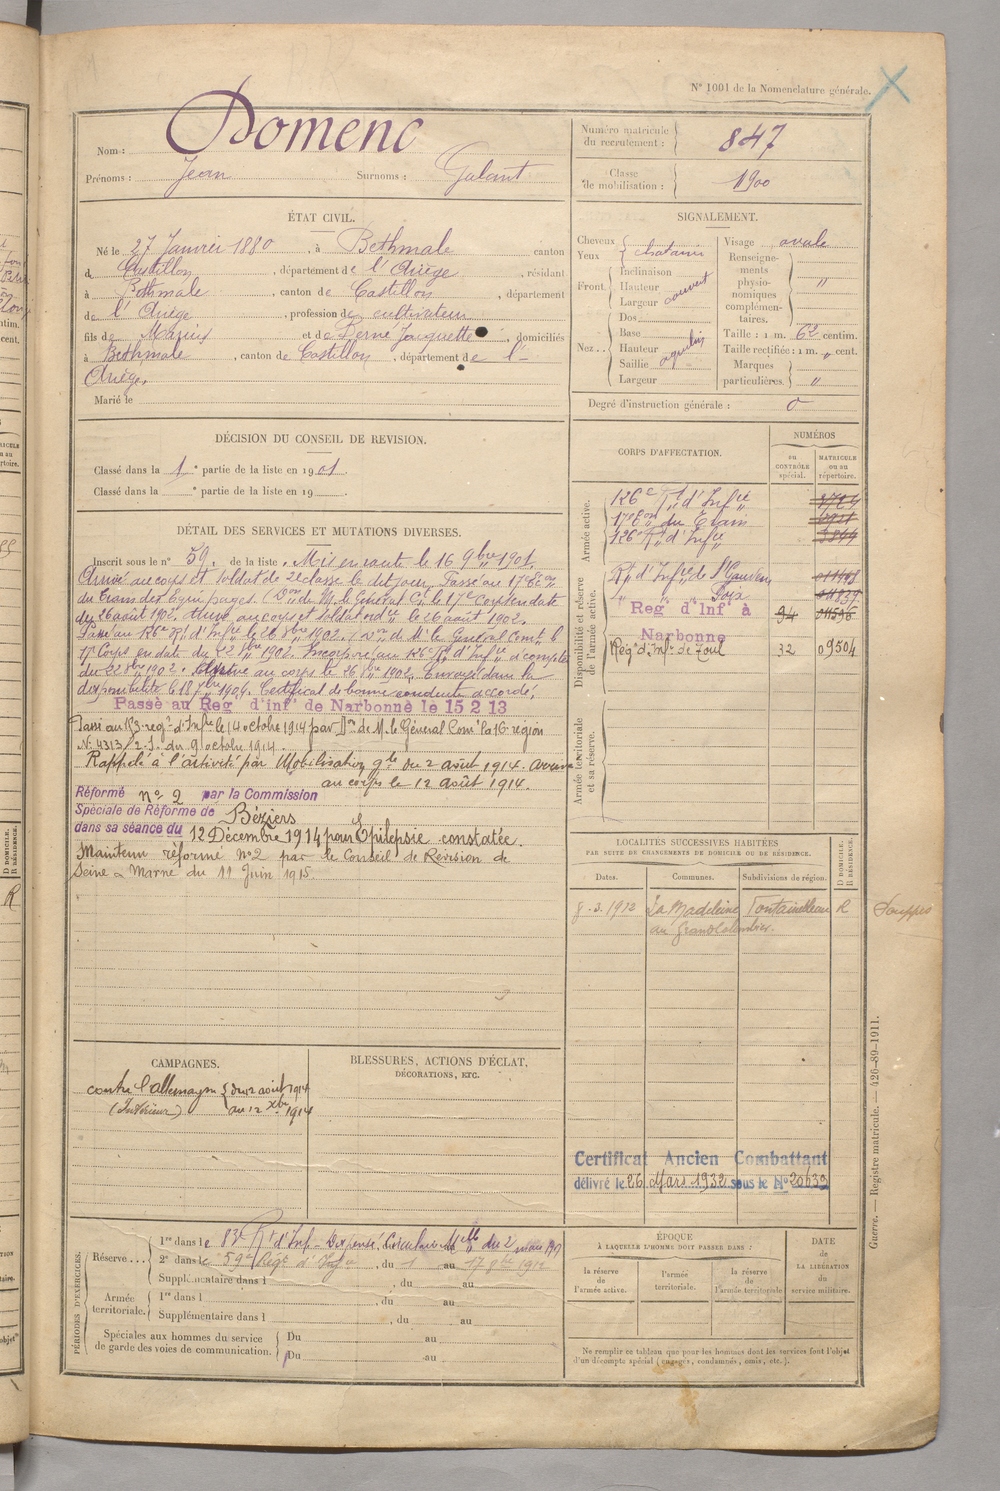 N° 1001 de la Nomenclature générale.
Nom : Domenc
Prénoms : Jean Surnoms : Galant
Numéro matricule du recrutement : 847
Classe de mobilisation : 1900
ÉTAT CIVIL.
Né le 27 Janvier 1880, à Bethmale canton
d Castillon, département de l'Ariège, résidant
à Bethmale, canton de Castillon, département
de l'Ariège, profession de cultivateur
fils de Marius et de Domenc Jacquette, domiciliés
à Bethmale, canton de Castillon, département de l'-
Ariège.
Marié le
SIGNALEMENT.
Cheveux
Yeux châtains
Front. Inclinaison
Hauteur
Largeur couvert
Nez.. Dos
Base
Hauteur
Saillie aquilin
Largeur
Visage ovale
Renseignements physionomiques complémentaires. "
Taille : 1 m. 62 centim.
Taille rectifiée : 1 m. " cent.
Marques particulières. "
Degré d'instruction générale : 0
DÉCISION DU CONSEIL DE REVISION.
Classé dans la 1e partie de la liste en 1901
Classé dans la e partie de la liste en 19
DÉTAIL DES SERVICES ET MUTATIONS DIVERSES.
Inscrit sous le n° 59. de la liste. Mis en route le 16 9bre 1901.
Arrivé au corps et soldat de 2e classe le dit jour. Passé au 17e Eon
du Train des Equipages. (Don de M. le Général Ct le 17e Corps en date
du 26 août 1902. Arrivé au corps et soldat le 26 août 1902.
Passé au 126e Rt d'Infie le 26 8bre 1902. (Don de M. le Général Comt le
17e Corps en date du 22 1902. Incorporé au 126e Rt d'Infie à compter
du 1902. Arrivé au corps le 26 1902. Envoyé dans la
disponibilité le 18 7bre 1904. Certificat de bonne conduite accordé.
Passé au Reg d'inf de Narbonne le 15 2 13
Passé au 83 reg. d'Infie le 14 octobre 1914 par Don de M. le Général Com. la 16 région
N° 4313/2-S. du 9 octobre 1914.
Rappelé à l'activité par Mobilisation gle du 2 août 1914. Arrivé
au corps le 12 août 1914.
Réformé n° 2 par la Commission
Spéciale de Réforme de Béziers
dans sa séance du 12 Décembre 1914 pour Epilepsie constatée.
Maintenu réformé n°2 par le Conseil de Révision de
Seine & Marne du 11 Juin 1915.
CORPS D'AFFECTATION.
NUMÉROS
au CONTRÔLE spécial.
MATRICULE ou au répertoire.
Armée active.
126e Rt d'Infie
17e Eon du Train
126e Rt d'Infie
Disponibilité et réserve de l'armée active.
Rt d'Infie de St Gaudens
d° Foix
Reg d'Inf à Narbonne 94
Rég. d'Infie de Toul 32 09504
Armée territoriale et sa réserve.
LOCALITÉS SUCCESSIVES HABITÉES
PAR SUITE DE CHANGEMENTS DE DOMICILE OU DE RÉSIDENCE.
Dates. Communes. Subdivisions de région. D DOMICILE. R RÉSIDENCE.
8.3.1912 La Madeleine Fontainebleau R Souppes
Certificat Ancien Combattant
délivré le 26 Mars 1932 sous le N° 20639
CAMPAGNES.
contre l'allemagne du 2 août 1914
(Intérieur) au 12 Xbre 1914
BLESSURES, ACTIONS D'ÉCLAT,
DÉCORATIONS, ETC.
PÉRIODES D'EXERCICES.
Réserve... 1re dans le 83e Rt d'Inf - Dispensé, Circulaire Melle du 2 mars
2e dans le 59e Régt d'Infie, du 1 au 17 8bre 1912
Supplémentaire dans l du au
Armée territoriale. 1re dans l, du au
Supplémentaire dans l, du au
Spéciales aux hommes du service de garde des voies de communication. Du au
Du au
ÉPOQUE
À LAQUELLE L'HOMME DOIT PASSER DANS :
la réserve de l'armée active. l'armée territoriale. la réserve de l'armée territoriale
DATE de LA LIBÉRATION du service militaire.
Ne remplir ce tableau que pour les hommes dont les services font l'objet
d'un décompte spécial (engagés, condamnés, omis, etc.).
Guerre. — Registre matricule. — 426-89-1911.